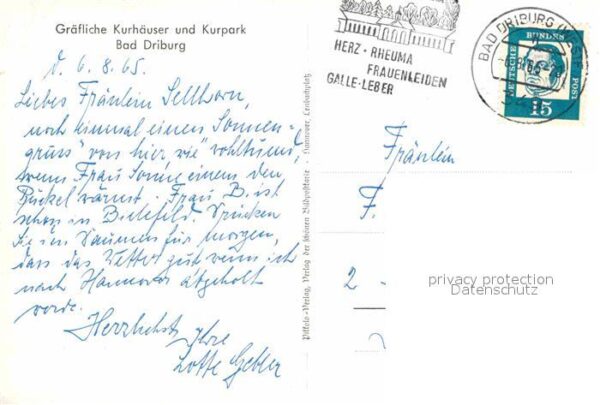 Gräfliche Kurhäuser und Kurpark
Bad Driburg
d. 6.8.65.
Liebes Fräulein Sellhorn,
noch einmal einen Sonnen-
gruss von hier, wie wohltuend,
wenn Frau Sonne einem den
Buckel wärmt. Frau B. ist
schon in Bielefeld. Drücken
Sie den Daumen für morgen,
dass das Wetter gut wenn ich
nach Hannover abgeholt
werde.
Herzlichst Ihre
Lotte Gebler
HERZ · RHEUMA
FRAUENLEIDEN
GALLE · LEBER
BAD DRIBURG
DEUTSCHE BUNDESPOST
15
Fräulein
F.
2
privacy protection
Datenschutz